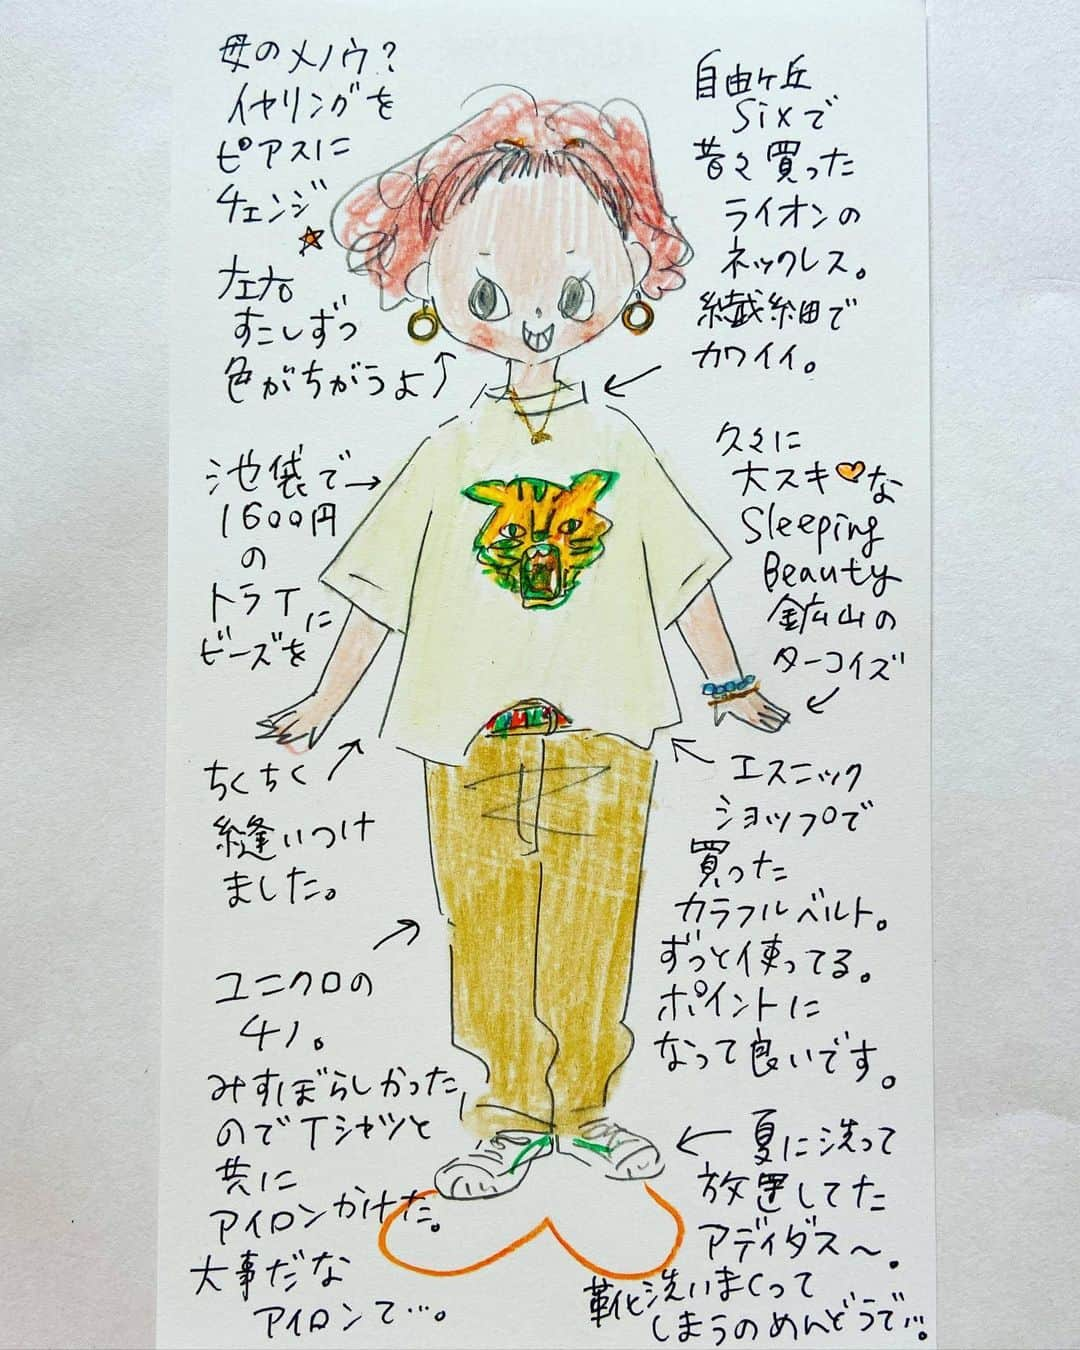 母のメノウ?
イヤリングを
ピアスに
チェンジ
左右
すこしずつ
色がちがうよ
自由ヶ丘
Sixで
昔々買った
ライオンの
ネックレス。
繊細で
カワイイ。
池袋で
1600円
の
トラT
に
ビーズを
ちくちく
縫いつけ
ました。
久々に
大スキな
Sleeping
Beauty
鉱山の
ターコイズ
エスニック
ショップで
買った
カラフルベルト。
ずっと使ってる。
ポイントに
なって良いです。
ユニクロの
チノ。
みすぼらしかった
のでTシャツと
共に
アイロンかけた。
大事だな
アイロンて…。
夏に洗って
放置してた
アディダス〜。
靴洗いまくって
しまうのめんどうで…。